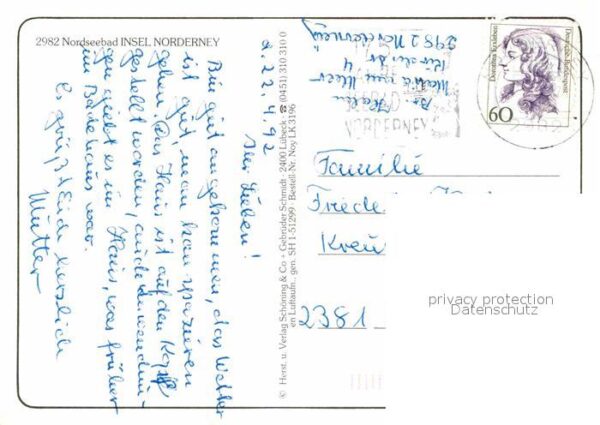 2982 Nordseebad INSEL NORDERNEY
d. 22.4.92
Ihr Lieben!
Bin gut angekommen, das Wetter
ist gut, man kann spazieren
gehen. Das Haus ist auf den Kopf
gestellt worden, auch
gen giebt es im Haus, was früher
im Badehaus war.
Es grüßt Euch herzlich
Mutter
© Herst. u. Verlag Schöning & Co + Gebrüder Schmidt · 2400 Lübeck · ☎ (0451) 310 310 0
en Luftaufn., gen. SH 1-51299 · Bestell-Nr. Noy LK 3196
Meer
4
2982 Norderney
NORDERNEY
Dorothea Erxleben
Deutsche Bundespost
60
Familie
Friede
Kreu
2381
privacy protection
Datenschutz